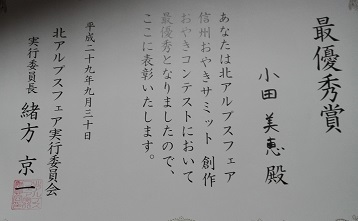 最優秀賞
小田美恵殿
あなたは北アルプスフェア
信州おやきサミット 創作
おやきコンテストにおいて
最優秀となりましたので、
ここに表彰いたします。
平成二十九年九月三十日
北アルプスフェア実行委員会
実行委員長 緒方京一